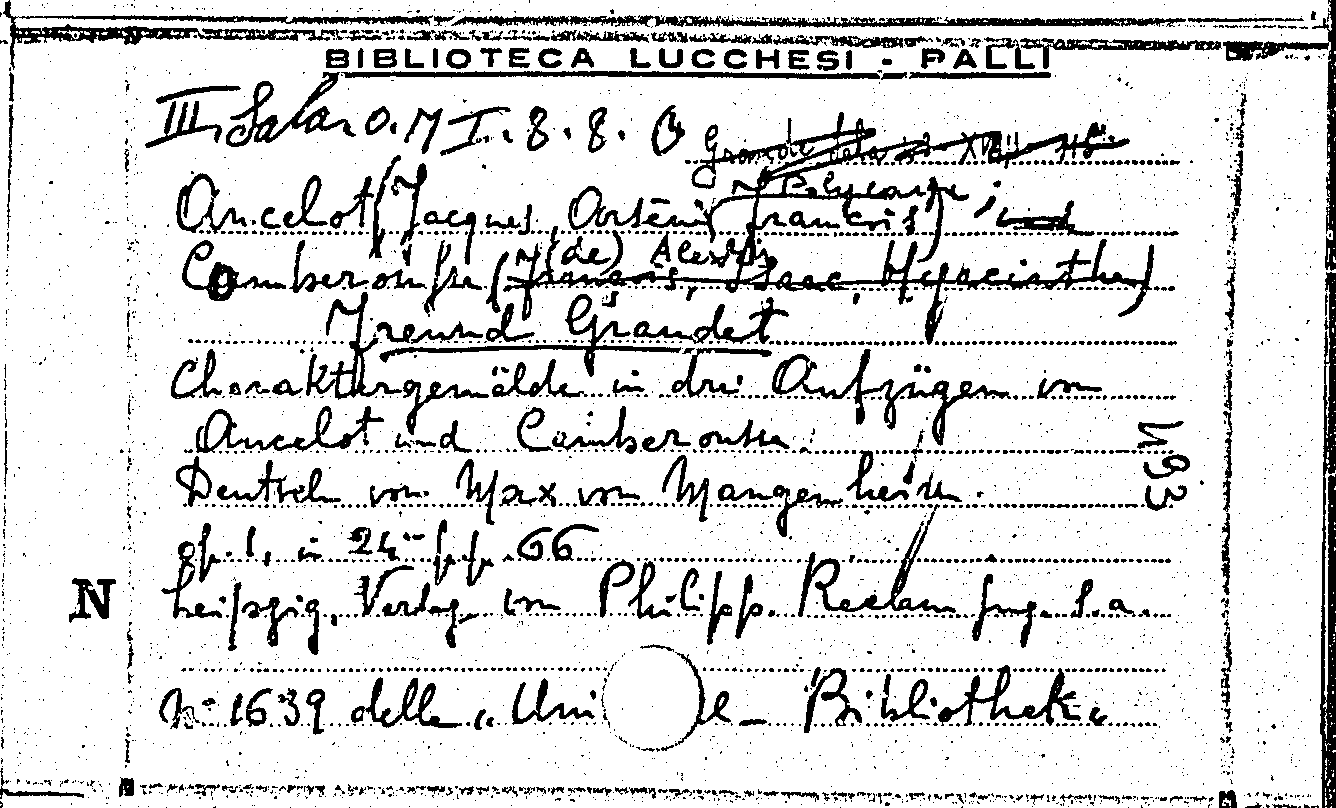 BIBLIOTECA LUCCHESI - PALLI
III Sala. O. M I. 8. 8. Grande Sala
Polycarpe
Ancelot (Jacques, Arsène François);
(de) Alexis
Comberousse (François, Isaac, Hyacinthe)
Freund Grandet
Charaktergemälde in drei Aufzügen von
Ancelot und Comberousse.
Deutsch von Max von Mangenheim.
op. 1, in 24° pp. 66
Leipzig, Verlag von Philipp. Reclam jung. s. a.
N
N° 1639 della "Uni l - Bibliothek"
493